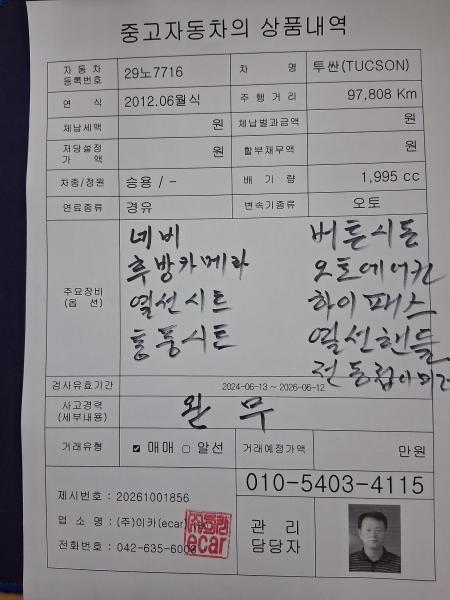 중고자동차의 상품내역
자동차등록번호 29노7716 차 명 투싼(TUCSON)
연 식 2012.06월식 주행거리 97,808 Km
체납세액 원 체납벌과금액 원
저당설정가 액 원 할부채무액 원
차종/정원 승용 / - 배 기 량 1,995 cc
연료종류 경유 변속기종류 오토
주요장비(옵 션)
네비 버튼시동
후방카메라 오토에어컨
열선시트 하이패스
통풍시트 열선핸들
전동접이미러
검사유효기간 2024-06-13 ~ 2026-06-12
사고경력(세부내용) 완 무
거래유형 매매 알선 거래예정가액 만원
010-5403-4115
제시번호 : 20261001856
업 소 명 : (주)이카(ecar)
전화번호 : 042-635-600
ecar
관 리
담당자